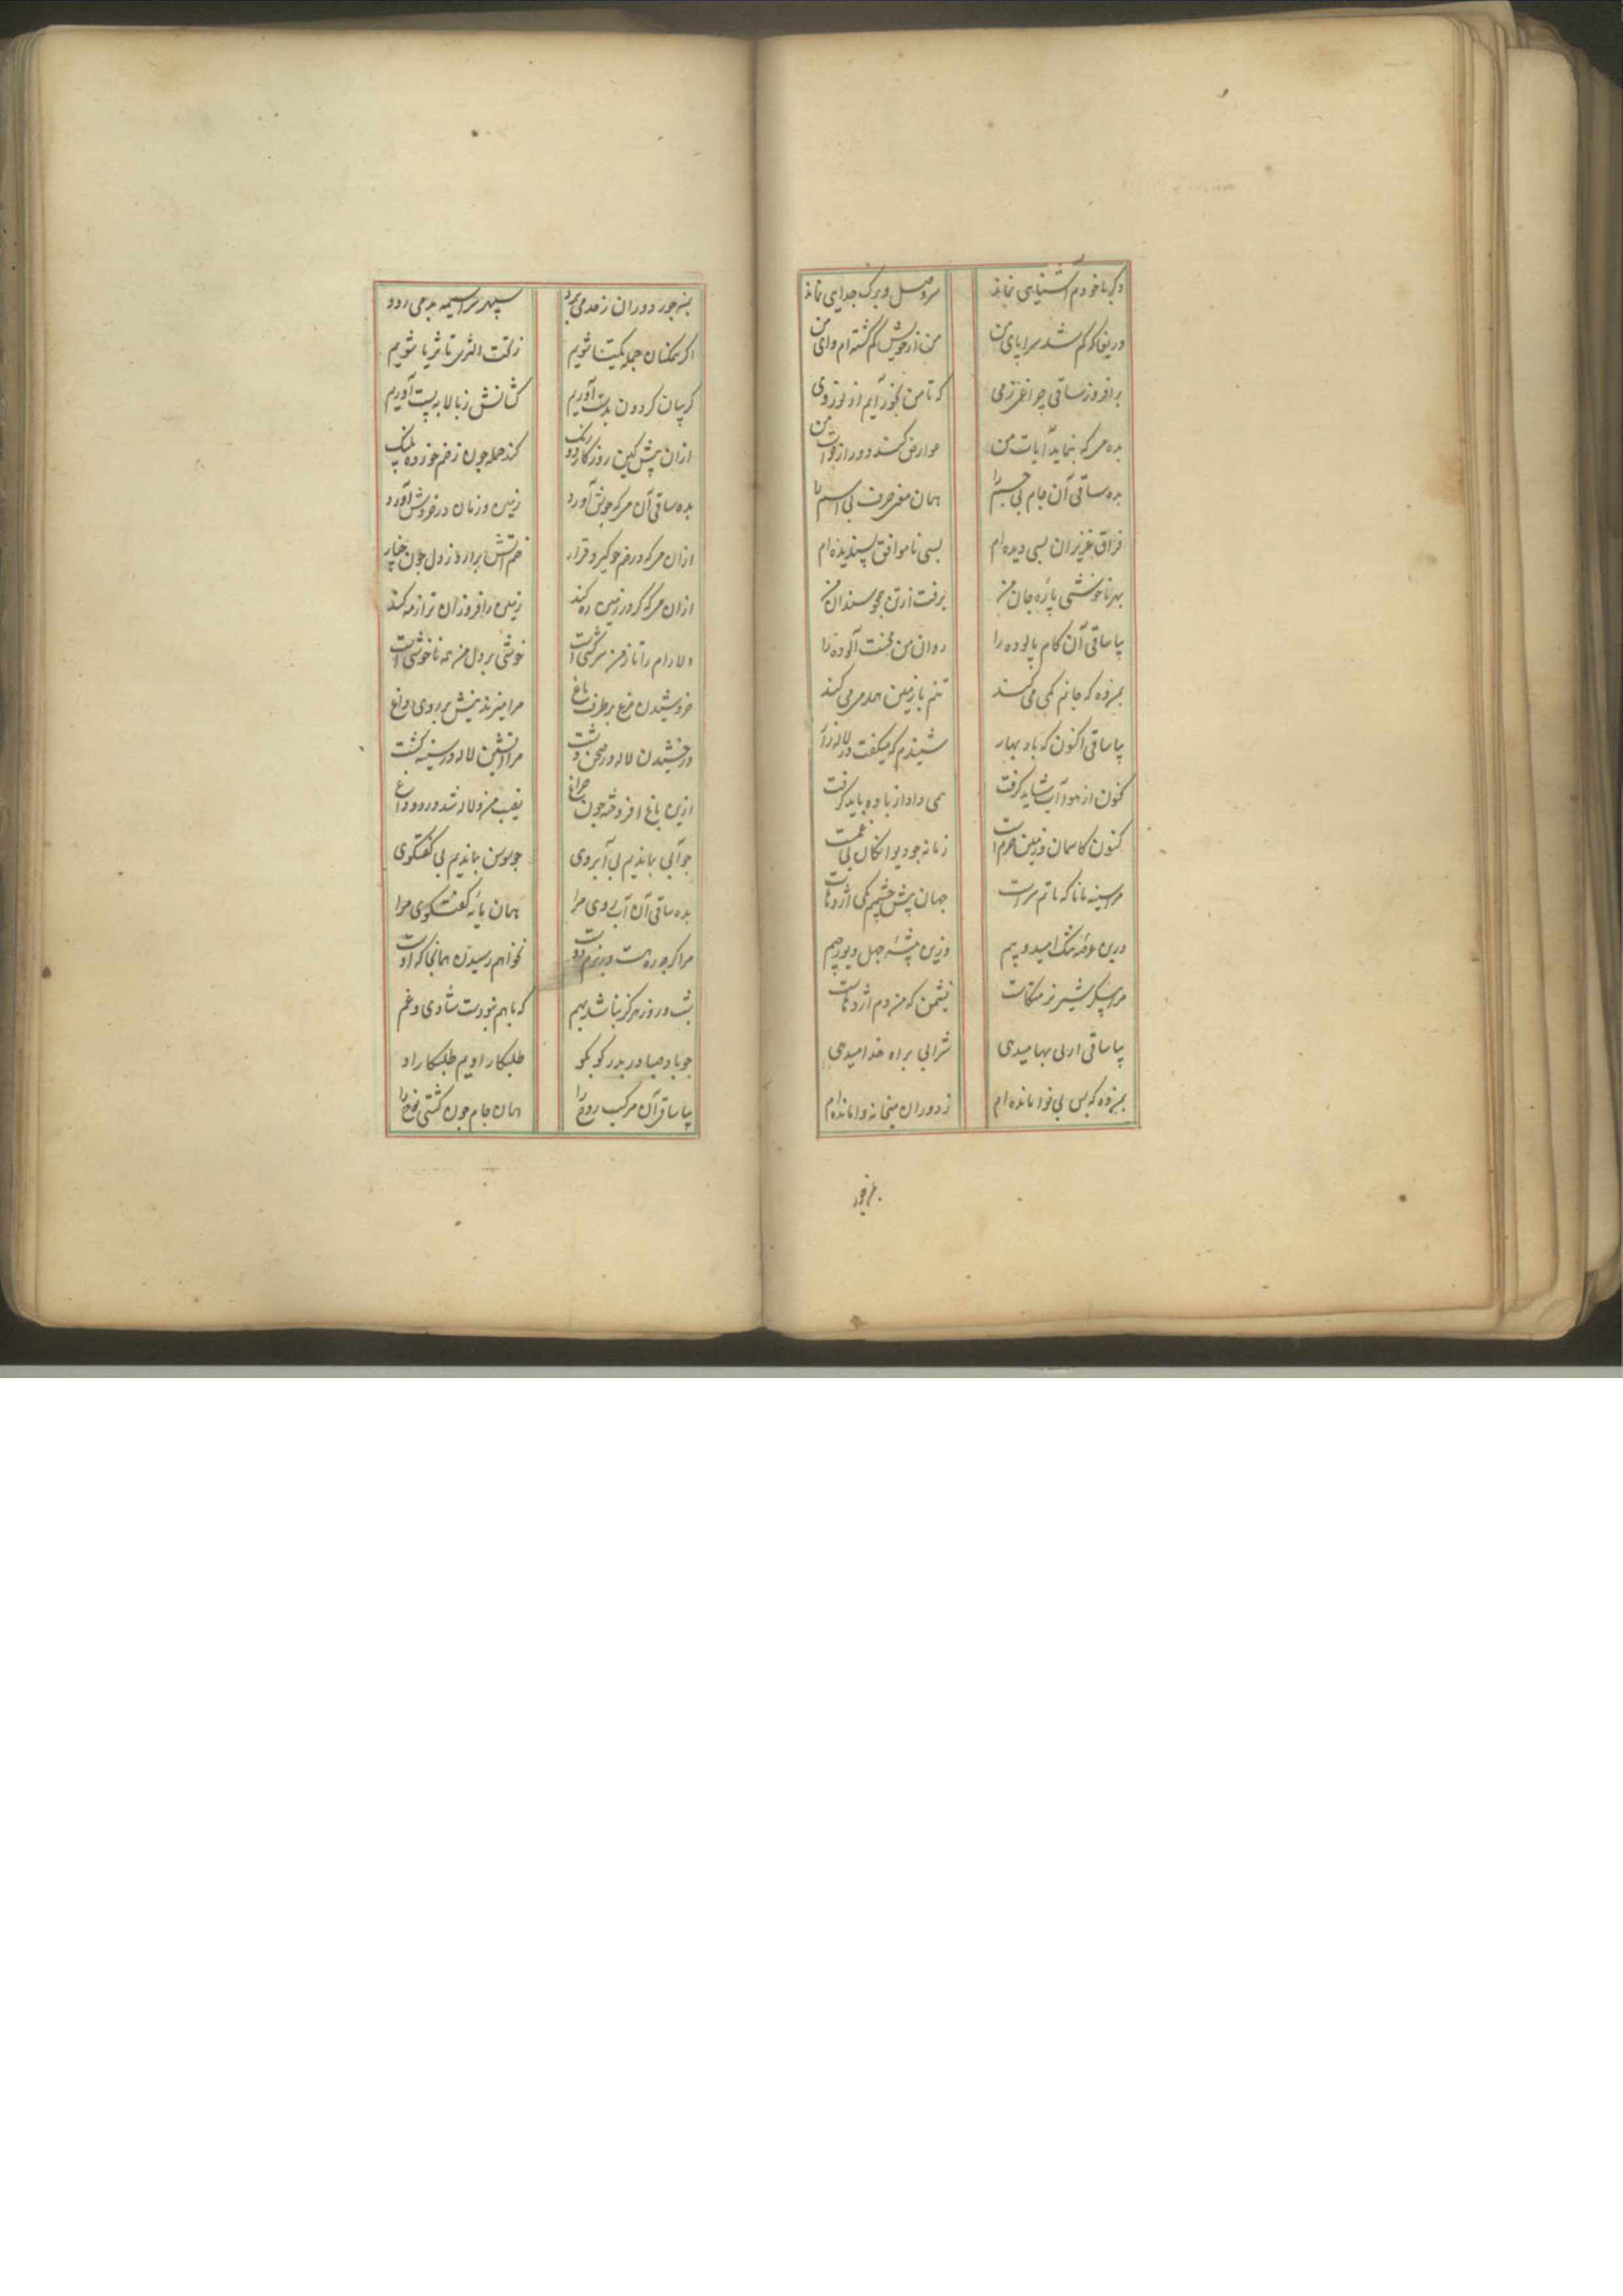 دگر با خودم آشنایی نماند سر وصل و برگ جدایی نماند
دریغا که گم شد سراپای من من از خویش گم گشته‌ام وای من
برافروز ساقی چراغی ز می که تا من بخود آیم از نور وی
بده می که بنماید آیات من عوارض کند دور از ذات من
بده ساقی آن جام بی جسم را همان مغز حرف بی اسم را
فراق عزیزان بسی دیده‌ام بسی ناموافق پسندیده‌ام
بهر ناخوشی پاره جان من برفت از تن همچو سندان من
بیا ساقی آن کام پالوده را روان من محنت آلوده را
بمن ده که جانم کمی می‌کند تنم با زمین همدمی می‌کند
بیا ساقی اکنون که باد بهار شنیدم که میگفت در لاله‌زار
کنون از هوا آب شاید گرفت همی داد از باده باید گرفت
کنون کاسمان و زمین خرم است زمانه چو دیوانگان بی غمست
مرا سینه مانا که ماتم سراست جهان پیش چشمم یکی اژدهاست
درین عرصه تنگ امید و بیم وزین بیشه جهل و دیو رجیم
شیر نر نشیمن که من دم اژدهاست
بیا ساقی ار بی بها میدهی شرابی براه خدا میدهی
بمن ده که بس بی نوا مانده‌ام ز دوران میخانه وامانده‌ام
جور دوران ز حد می برد سپهر سراسیمه بد می رود
اگر همکنان جمله یکتا شویم ز تحت الثری تا ثریا شویم
گریبان گردون بدست آوریم کشانش ز بالا به پست آوریم
ازان پیش کین روزگار دو رنگ کند حمله چون زخم خورده پلنگ
بده ساقی آن می که جوش آورد زمین و زمان در خروش آورد
ازان می که در خم چو گیرد قرار خم آتش برارد ز دل چون چنار
ازان می که گر در زمین ره کند زمین را فروزان تر از مه کند
دلارام را تا ز من سرکشی است خوشی بر دل من همه ناخوشی است
خروشیدن مرغ بر طرف باغ مرا میزند نیش بر روی داغ
درخشیدن لاله در صحن دشت مرا آتشین لاله در سینه گشت
ازین باغ افروخته چون چراغ نصیب من و لاله شد درد و داغ
چو آبی بماندیم بی آبروی چو سوسن بماندیم بی گفتگوی
بده ساقی آن آب روی مرا همان مایه گفتگوی مرا
مرا گرچه ره هست در بزم دوست نخواهم رسیدن همانجا که اوست
شب و روز هرگز نباشد بهم که با هم نبودست شادی و غم
چو باد صبا در بدر کو بکو طلبکار اویم طلبکار او
بیا ساقی آن مرکب روح را همان جام چون کشتی نوح را